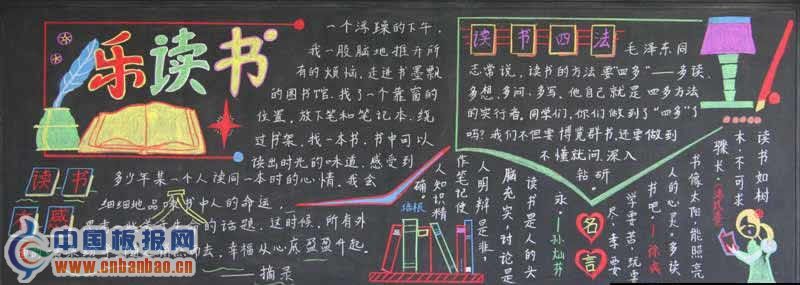 乐读书
一个浮躁的下午,
我一股脑地推开所
有的烦恼,走进书墨飘
的图书馆。找了一个靠窗的
位置,放下笔和笔记本。绕
过书架,找一本书。书中可以
读出时光的味道,感受到
多少年某一个人读同一本时的心情,我会
细细地品味书中人的命运,
的话题,这时候,所有外
去,幸福从心底盈盈升起。
——摘录
读书
感
读书四法
毛泽东同
志常说,读书的方法要“四多”——多读、
多想、多问、多写。他自己就是四多方法
的实行者,同学们,你们做到了“四多”了
吗?我们不但要博览群书,还要做到
不懂就问,深入
钻研。
读书如树
木,不可求
骤长。
书像太阳,能照亮
人的心灵,多读
书吧。
学要苦,玩要
尽,李要
名言
读书是人的头
脑充实,讨论是
人明辩是非,
作笔记使
人知识精
确
培根
中国板报网
www.cnbanbao.cn